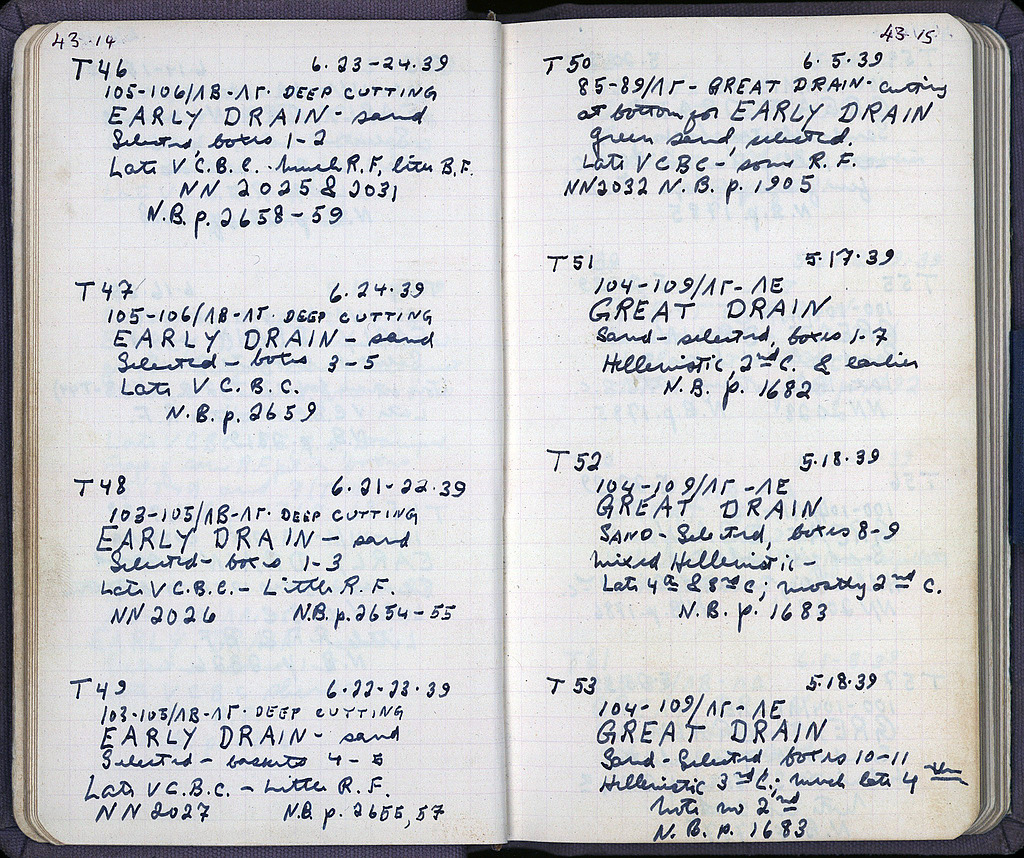 43·14
T 46 6·23-24·39
105-106/ΛB-ΛΓ· DEEP CUTTING
EARLY DRAIN - sand
Selected, boxes 1-2
Late V C.B.C. - much R.F., little B.F.
NN 2025 & 2031
N.B. p. 2658-59
T 47 6·24·39
105-106/ΛB-ΛΓ· DEEP CUTTING
EARLY DRAIN - sand
Selected - boxes 3-5
Late V C.B.C.
N.B. p. 2659
T 48 6·21-22·39
103-105/ΛB-ΛΓ· DEEP CUTTING
EARLY DRAIN - sand
Selected - boxes 1-3
Late V C.B.C. - Little R.F.
NN 2026 N.B. p. 2654-55
T 49 6·22-23·39
103-105/ΛB-ΛΓ· DEEP CUTTING
EARLY DRAIN - sand
Selected - baskets 4-5
Late V C.B.C. - Little R.F.
NN 2027 N.B. p. 2655, 57
43·15
T 50 6·5·39
85-89/ΛΓ - GREAT DRAIN - cutting
at bottom for EARLY DRAIN
green sand, selected.
Late V C B C - some R.F.
NN2032 N.B. p. 1905
T 51 5·17·39
104-109/ΛΓ - ΛE
GREAT DRAIN
Sand - selected, boxes 1-7
Hellenistic, 2nd C. & earlier
N.B. p. 1682
T 52 5·18·39
104-109/ΛΓ - ΛE
GREAT DRAIN
SAND - Selected, boxes 8-9
mixed Hellenistic -
Late 4th & 3rd C; mostly 2nd C.
N.B. p. 1683
T 53 5·18·39
104-109/ΛΓ - ΛE
GREAT DRAIN
Sand - Selected boxes 10-11
Hellenistic 3rd C.; much late 4th
note no 2nd
N.B. p. 1683